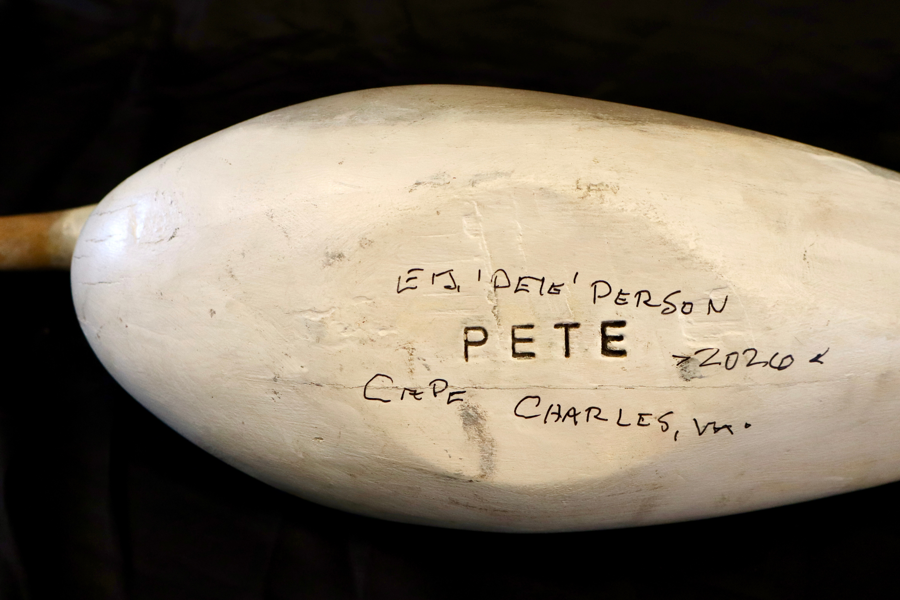 E.J. 'PETE' PERSON
PETE
>2026<
CAPE CHARLES, VA.